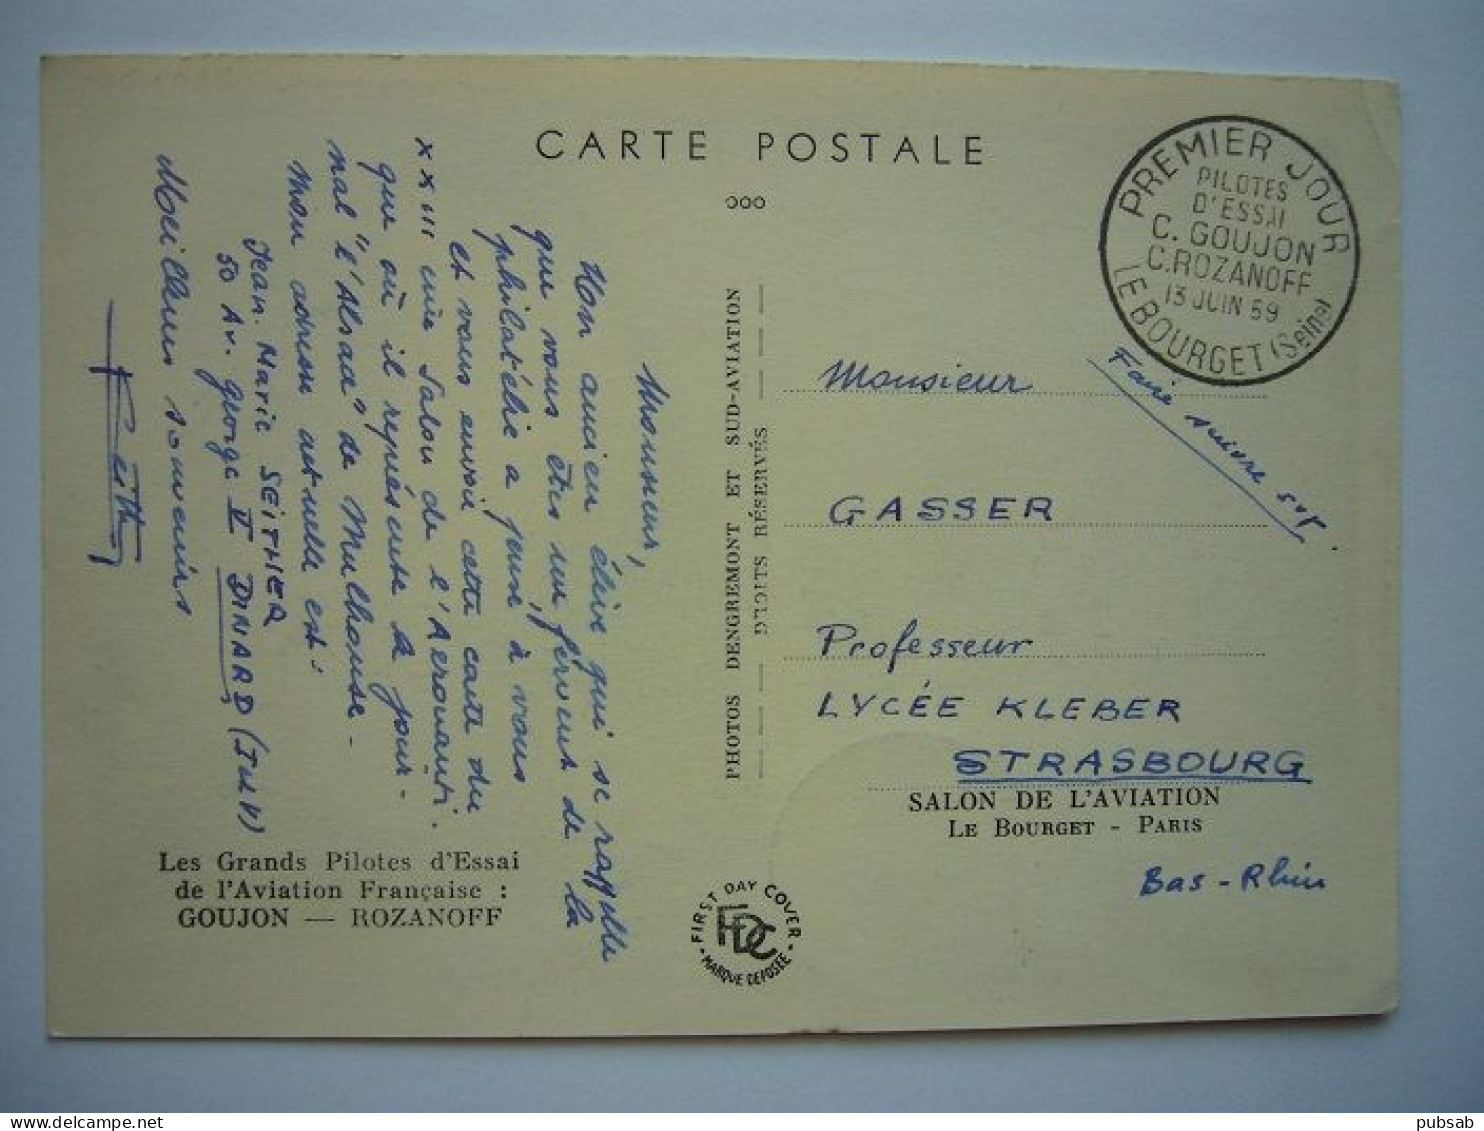 CARTE POSTALE
PREMIER JOUR
PILOTES
D'ESSAI
C. GOUJON
C. ROZANOFF
13 JUIN 59
LE BOURGET (Seine)
Monsieur,
Un ancien élève qui se rappelle
que vous êtes un fervent de la
philatélie a pensé à vous
et vous envoie cette carte du
XXIII ième Salon de l'Aéronauti.
que où il représente le jour-
nal "l'Alsace" de Mulhouse -
Mon adresse actuelle est:
Jean. Marie SEITHER
50 Av. George V DINARD (I et V)
Meilleurs souvenirs
Les Grands Pilotes d'Essai
de l'Aviation Française :
GOUJON — ROZANOFF
PHOTOS DENGREMONT ET SUD-AVIATION
DROITS RÉSERVÉS
FIRST DAY COVER
FDC
MARQUE DEPOSÉE
Faire suivre svp
Monsieur
GASSER
Professeur
LYCÉE KLEBER
STRASBOURG
SALON DE L'AVIATION
LE BOURGET - PARIS
Bas-Rhin
www.delcampe.net
pubsab